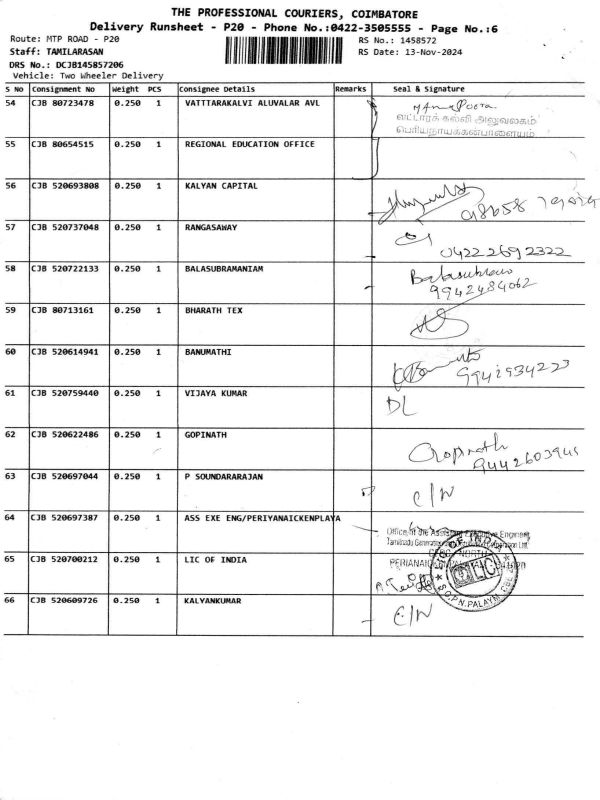 THE PROFESSIONAL COURIERS, COIMBATORE
Delivery Runsheet - P20 - Phone No.:0422-3505555 - Page No.:6
Route: MTP ROAD - P20
RS No.: 1458572
Staff: TAMILARASAN
RS Date: 13-Nov-2024
DRS No.: DCJB145857206
Vehicle: Two Wheeler Delivery
S No Consignment No Weight PCS Consignee Details Remarks Seal & Signature
54 CJB 80723478 0.250 1 VATTTARAKALVI ALUVALAR AVL
வட்டாரக் கல்வி அலுவலகம்
பெரியநாயக்கன்பாளையம்
55 CJB 80654515 0.250 1 REGIONAL EDUCATION OFFICE
56 CJB 520693808 0.250 1 KALYAN CAPITAL
57 CJB 520737048 0.250 1 RANGASAWAY
0422 2692322
58 CJB 520722133 0.250 1 BALASUBRAMANIAM
9942484062
59 CJB 80713161 0.250 1 BHARATH TEX
60 CJB 520614941 0.250 1 BANUMATHI
9942934223
61 CJB 520759440 0.250 1 VIJAYA KUMAR
DL
62 CJB 520622486 0.250 1 GOPINATH
Gopinath
63 CJB 520697044 0.250 1 P SOUNDARARAJAN
C/W
64 CJB 520697387 0.250 1 ASS EXE ENG/PERIYANAICKENPLAYA
Office of the Assistant Executive Engineer
65 CJB 520700212 0.250 1 LIC OF INDIA
LIC
66 CJB 520609726 0.250 1 KALYANKUMAR
C/W